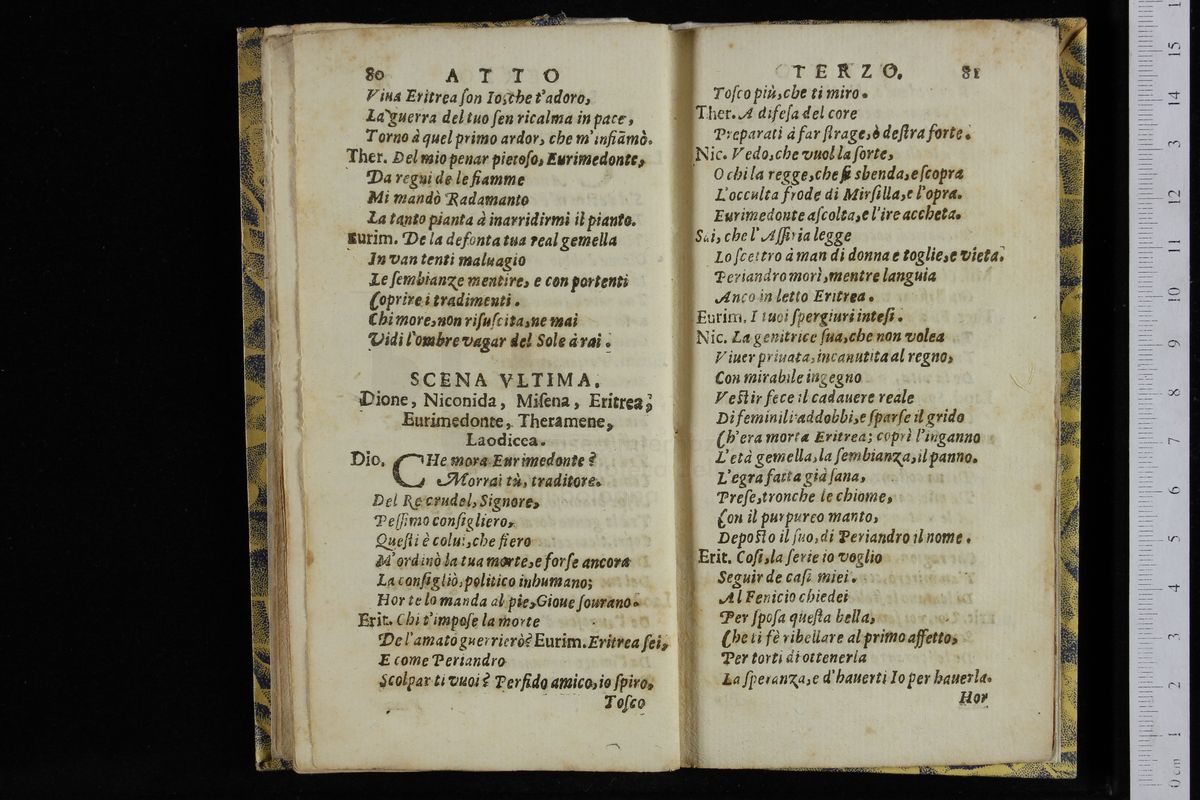 80 ATTO
Viua Eritrea son Io, che t'adoro,
La guerra del tuo sen ricalma in pace,
Torno à quel primo ardor, che m'infiāmò.
Ther. Del mio penar pietoso, Eurimedonte,
Da regni de le fiamme
Mi mandò Radamanto
La tanto pianta à inarridirmi il pianto.
Eurim. De la defonta tua real gemella
In van tenti maluagio
Le sembianze mentire, e con portenti
Coprire i tradimenti.
Chi more, non risuscita, ne mai
Vidi l'ombre vagar del Sole à rai.
SCENA VLTIMA.
Dione, Niconida, Misena, Eritrea,
Eurimedonte, Theramene,
Laodicea.
Dio. CHe mora Eurimedonte?
Morrai tù, traditore.
Del Re crudel, Signore,
Pessimo consigliero,
Questi è colui, che fiero
M'ordinò la tua morte, e forse ancora
La consigliò, politico inhumano;
Hor te lo manda al piè, Gioue sourano.
Erit. Chi t'impose la morte
De l'amato guerriero? Eurim. Eritrea sei,
E come Periandro
Scolpar ti vuoi? Perfido amico, io spiro,
Tosco
TERZO. 81
Tosco più, che ti miro.
Ther. A difesa del core
Preparati à far strage, ò destra forte.
Nic. Vedo, che vuol la sorte,
O chi la regge, che si sbenda, e scopra
L'occulta frode di Mirsilla, e l'opra.
Eurimedonte ascolta, e l'ire accheta.
Sai, che l'Assiria legge
Lo scettro à man di donna e toglie, e vieta.
Periandro morì, mentre languia
Anco in letto Eritrea.
Eurim. I tuoi spergiuri intesi.
Nic. La genitrice sua, che non volea
Viuer priuata, incanutita al regno,
Con mirabile ingegno
Vestir fece il cadauere reale
Di feminili addobbi, e sparse il grido
Ch'era morta Eritrea; coprì l'inganno
L'età gemella, la sembianza, il panno.
L'egra fatta già sana,
Prese, tronche le chiome,
Con il purpureo manto,
Deposto il suo, di Periandro il nome.
Erit. Così, la serie io voglio
Seguir de casi miei.
Al Fenicio chiedei
Per sposa questa bella,
Che ti fè ribellare al primo affetto,
Per torti di ottenerla
La speranza, e d'hauerti Io per hauerla.
Hor
15
14
3
12
11
10
9
8
7
6
5
4
3
2
1
0 cm